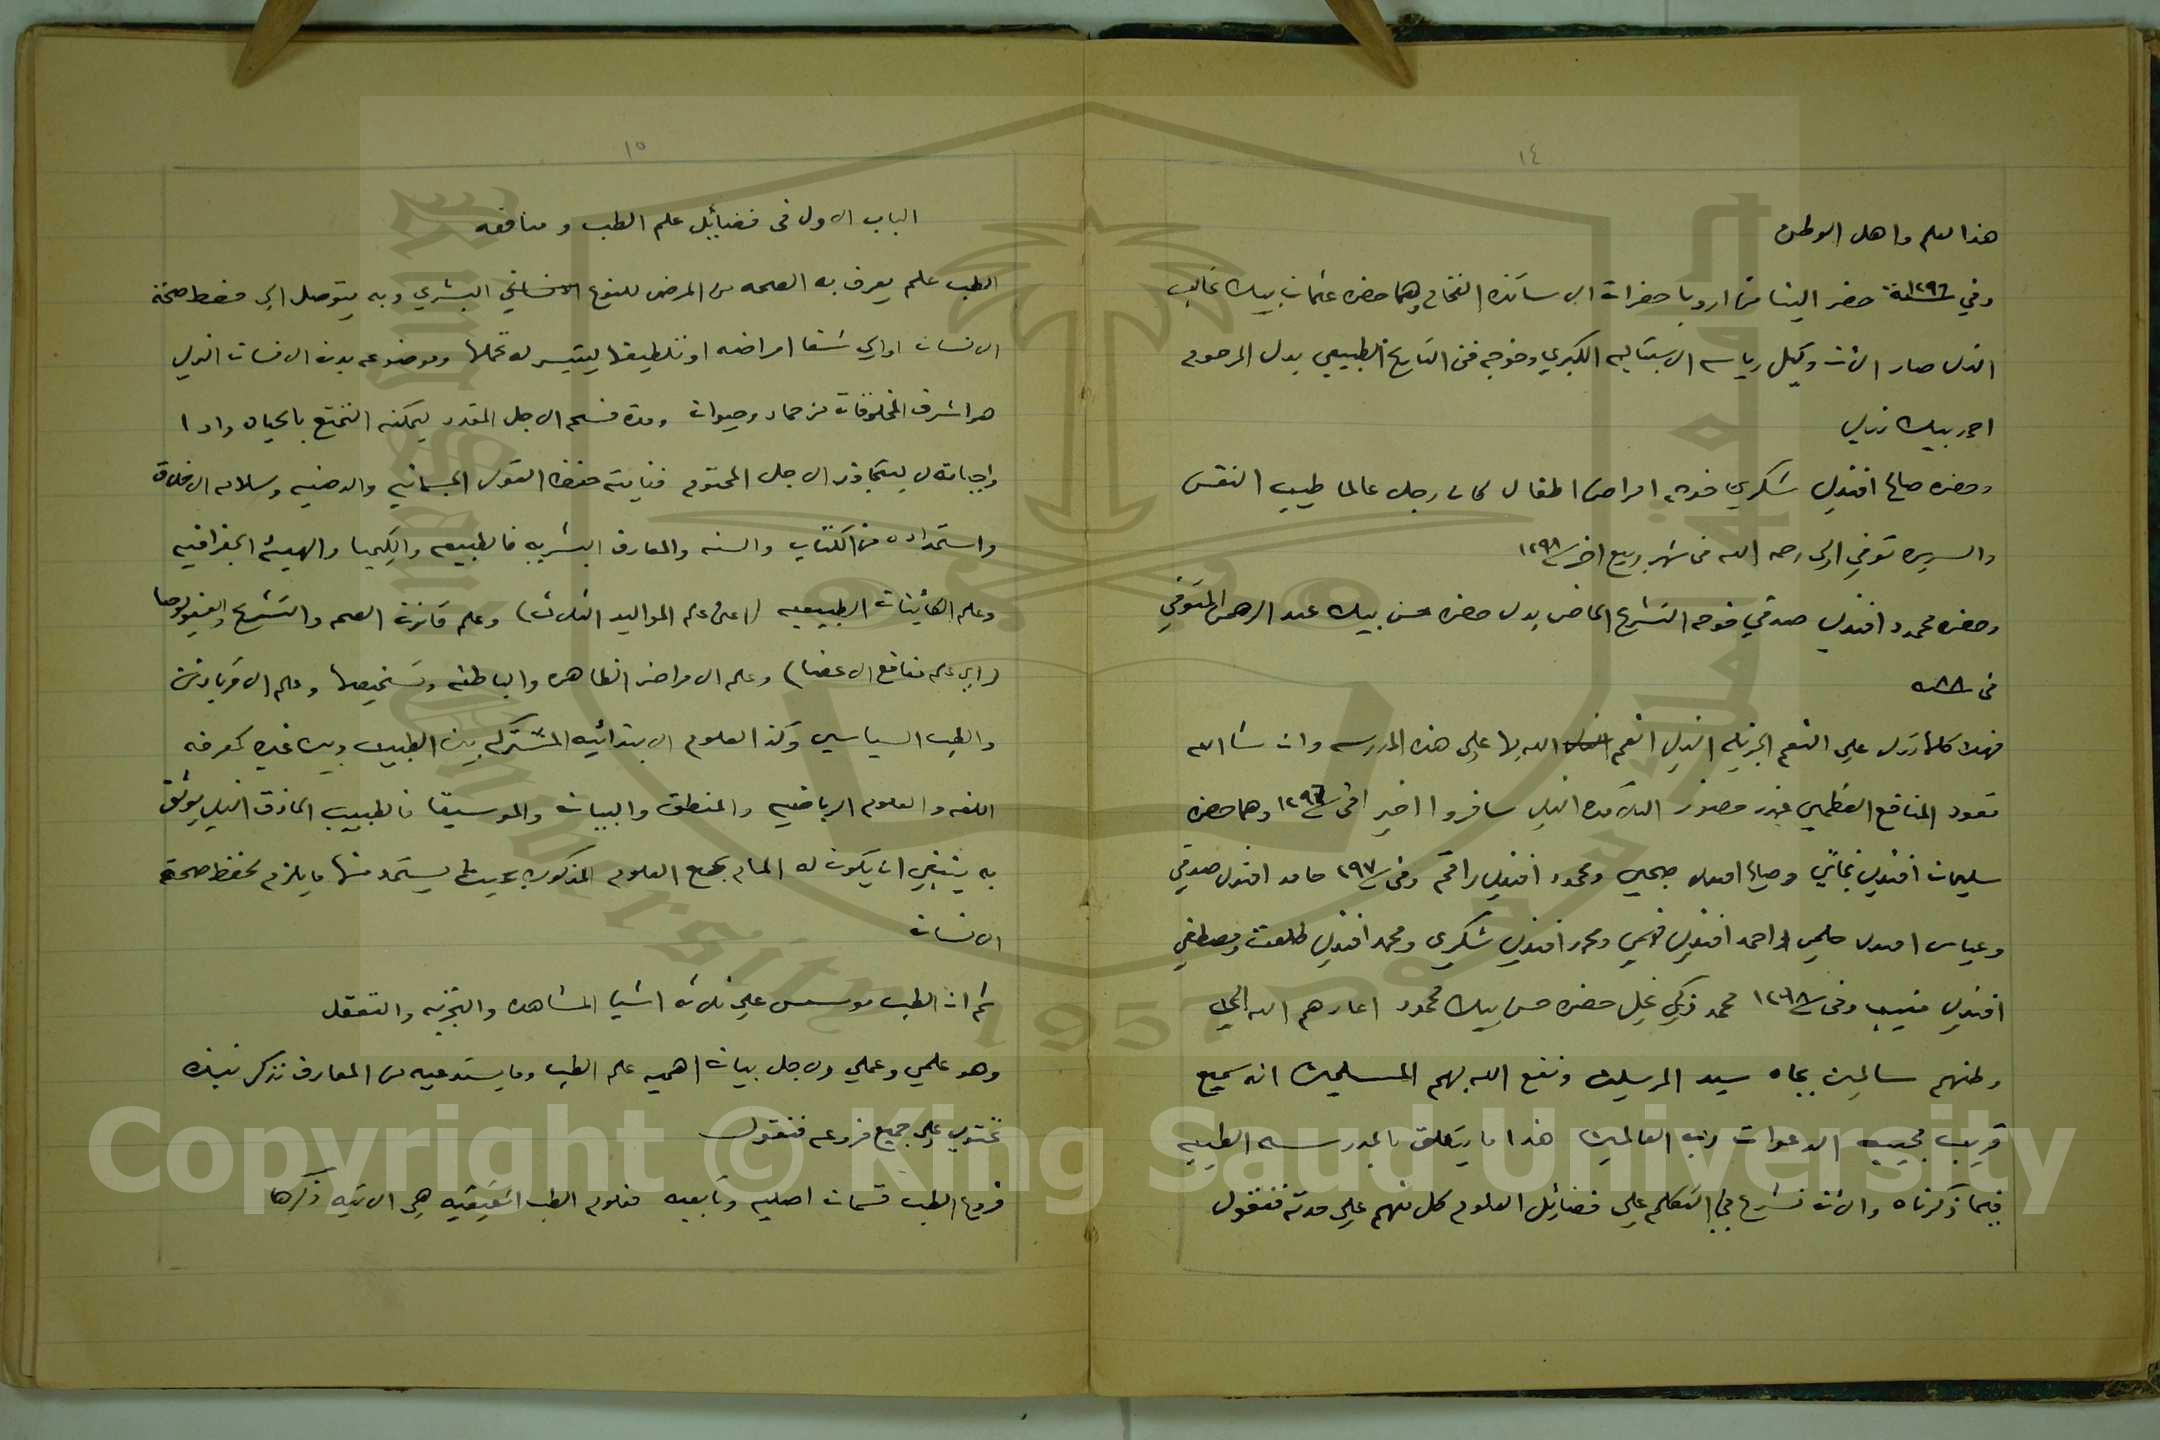 ١٤
هذا العلم واهل الوطن
وفي سنة ١٢٩٦ حضر الينا من اروبا حضرات الاساتذه الفخام وهما حضره عثمان بيك غالب
الذى صار الان وكيل رياسه الاسبتاليه الكبري وخوجه فن التاريخ الطبيعي بدل المرحوم
احمد بيك ندى
وحضره صالح افندى شكري خوجه امراض اطفال كان رجل عالما طيب النفس
والسيره توفي الى رحمه الله فى شهر ربيع اخر سنة ١٢٩٨
وحضره محمود افندى صدقي خوجه التشريح الخاص بدل حضره حسن بيك عبد الرحمن المتوفي
فى
فهذه كلها تدل على النعم الجزيله الذى انعم الله بها على هذه المدرسه وان شا الله
تعود المنافع العظمي عند حضور التلامذه الذى سافروا اخيرا فى سنة ١٢٩٦ وهما حضره
سليمان افندى نجاتي وصالح افندى صبحي ومحمود افندى راقم وفى سنة ٢٩٧ حامد افندى صدقي
وعباس افندى حلمي واحمد افندى فهمي ومحمد افندى شكرى ومحمد افندى طلعت ومصطفي
افندى منيب وفى سنة ١٢٩٨ محمد زكي نجل حضره حسن بيك محمود اعادهم الله الى
وطنهم سالمين بجاه سيد المرسلين ونفع الله بهم المسلمين انه سميع
قريب مجيب الدعوات رب العالمين هذا ما يتعلق بالمدرسه الطبيه
فيما ذكرناه والان نشرع في التكلم على فضائل العلوم كل منهم على حدته فنقول
١٥
الباب الاول فى فضائل علم الطب ومنافعه
الطب علم يعرف به الصحه من المرض للنوع البشري وبه يتوصل الى حفظ صحة
الانسان او الى شفا امراضه او تلطيفها ليتيسر له تحملها وموضوعه بدن الانسان الذى
هو اشرف المخلوقات من جماد وحيوان ومدة فسحه الاجل المقدر يمكنه التمتع بالحياه وادا
واجباته الى يتجاوز الاجل المحتوم فغايته حفظ القوى الجسمانيه والذهنيه وسلامه الاخلاق
واستمداده من الكتاب والسنه والمعارف البشريه فالطبيعه والكيميا والهيئه الجغرافيه
وعلم الكائنات الطبيعيه (اعنى علم المواليد الثلاث) وعلم قانون الصحه والتشريح والفسيولوجيا
(اى علم منافع الاعضا) وعلم الامراض الظاهره والباطنه وتشخيصها وعلم الاقرباذين
والطب السياسي وكذا العلوم الابتدائيه المشتركه بين الطبيب وبين غيره كمعرفه
اللغه والعلوم الرياضيه والمنطق والبيان والموسيقا فالطبيب الحاذق الذى يوثق
به ينبغي ان يكون له المام بجميع العلوم المذكوره بحيث يستمد منها ما يلزم لحفظ صحة
الانسان
ثم ان الطب موسس على ثلاثه اشيا المشاهده والتجربه والتعقل
وهو علمي وعملي ولاجل بيان اهميه علم الطب وما يستدعيه من المعارف نذكر نبذه
تحتوى على جميع فروعه فنقول
فروع الطب قسمان اصليه وتابعيه فعلوم الطب الحقيقيه هى الاتيه ذكرها
Copyright © King Saud University
King Saud University
1957